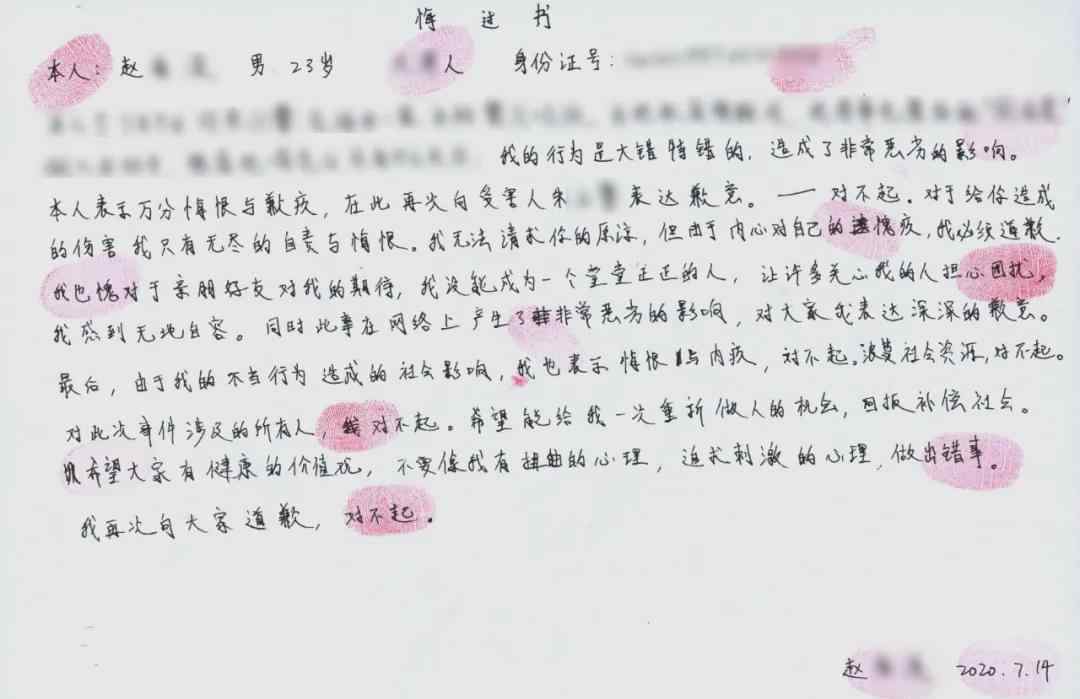 悔过书
本人：赵 男 23岁 人 身份证号：
我的行为是大错特错的，造成了非常恶劣的影响。
本人表示万分悔恨与歉疚，在此再次向受害人朱 表达歉意。——对不起。对于给你造成
的伤害我只有无尽的自责与悔恨。我无法请求你的原谅，但由于内心对自己的愧疚，我必须道歉。
我也愧对于亲朋好友对我的期待，我没能成为一个堂堂正正的人，让许多关心我的人担心困扰，
我感到无地自容。同时此事在网络上产生了非常恶劣的影响，对大家我表达深深的歉意。
最后，由于我的不当行为造成的社会影响，我也表示悔恨与内疚，对不起。浪费社会资源，对不起。
对此次事件涉及的所有人，对不起。希望能给我一次重新做人的机会，回报补偿社会。
希望大家有健康的价值观，不要像我有扭曲的心理，追求刺激的心理，做出错事。
我再次向大家道歉，对不起。
赵 2020.7.14